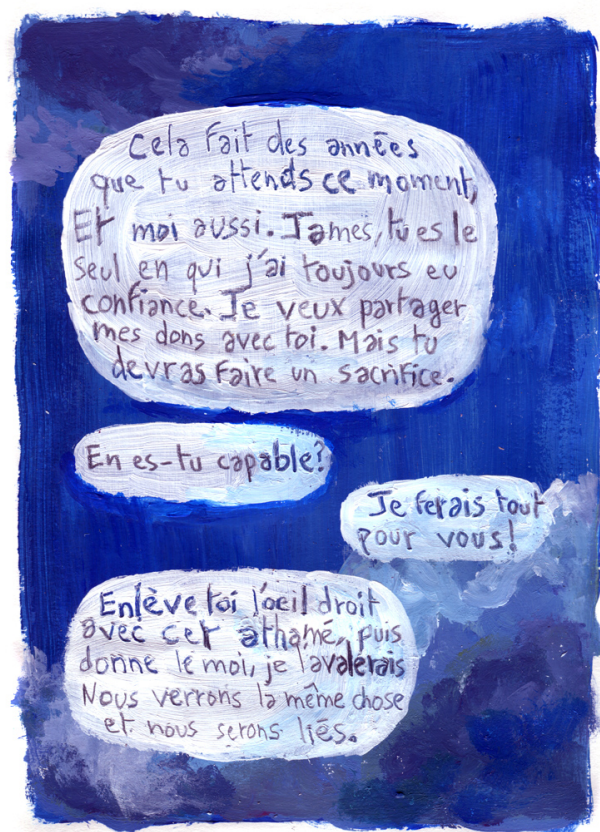 Cela fait des années
que tu attends ce moment,
Et moi aussi. James, tu es le
seul en qui j'ai toujours eu
confiance. Je veux partager
mes dons avec toi. Mais tu
devras faire un sacrifice.
En es-tu capable?
Je ferais tout
pour vous!
Enlève toi l'oeil droit
avec cet athamé, puis
donne le moi, je l'avalerais
Nous verrons la même chose
et nous serons liés.